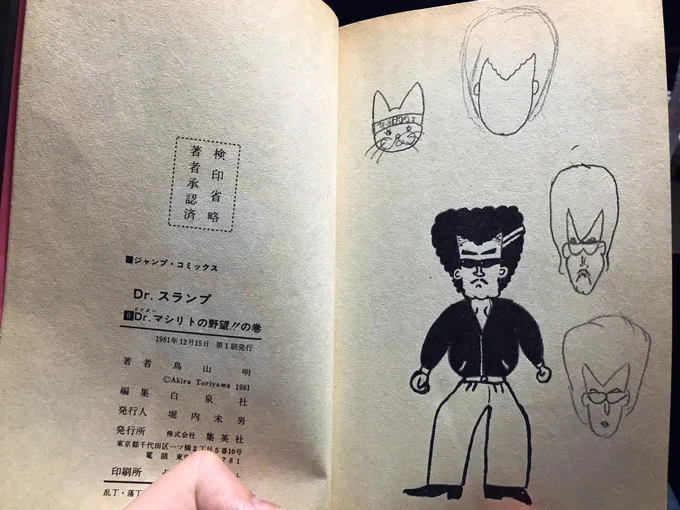 検印省略
著者承認済
■ジャンプ・コミックス
Dr.スランプ
6 Dr.マシリトの野望!!の巻
ドクター
1981年12月15日 第1刷発行
著者 鳥山明
©Akira Toriyama 1981
編集 白泉社
発行人 堀内末男
発行所 株式会社 集英社
東京都千代田区一ツ橋2丁目5番10号
電話 東
781
印刷所
乱丁・落丁